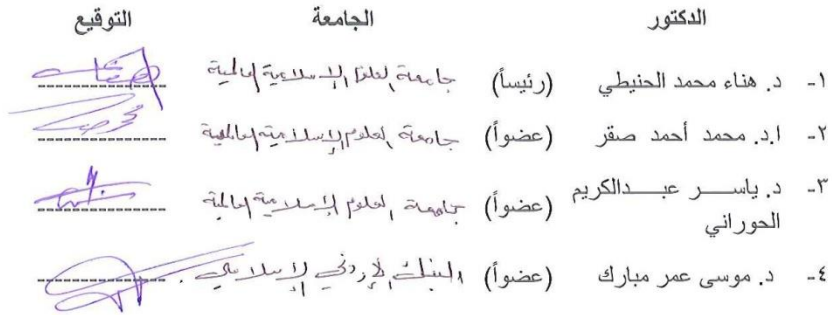 الدكتور الجامعة التوقيع
١- د. هناء محمد الحنيطي (رئيساً) جامعة العلوم الإسلامية العالمية
٢- ا.د. محمد أحمد صقر (عضواً) جامعة العلوم الإسلامية العالمية
٣- د. ياســـر عبـــدالكريم (عضواً) جامعة العلوم الإسلامية العالمية
الحوراني
٤- د. موسى عمر مبارك (عضواً) البنك الأردني الإسلامي.